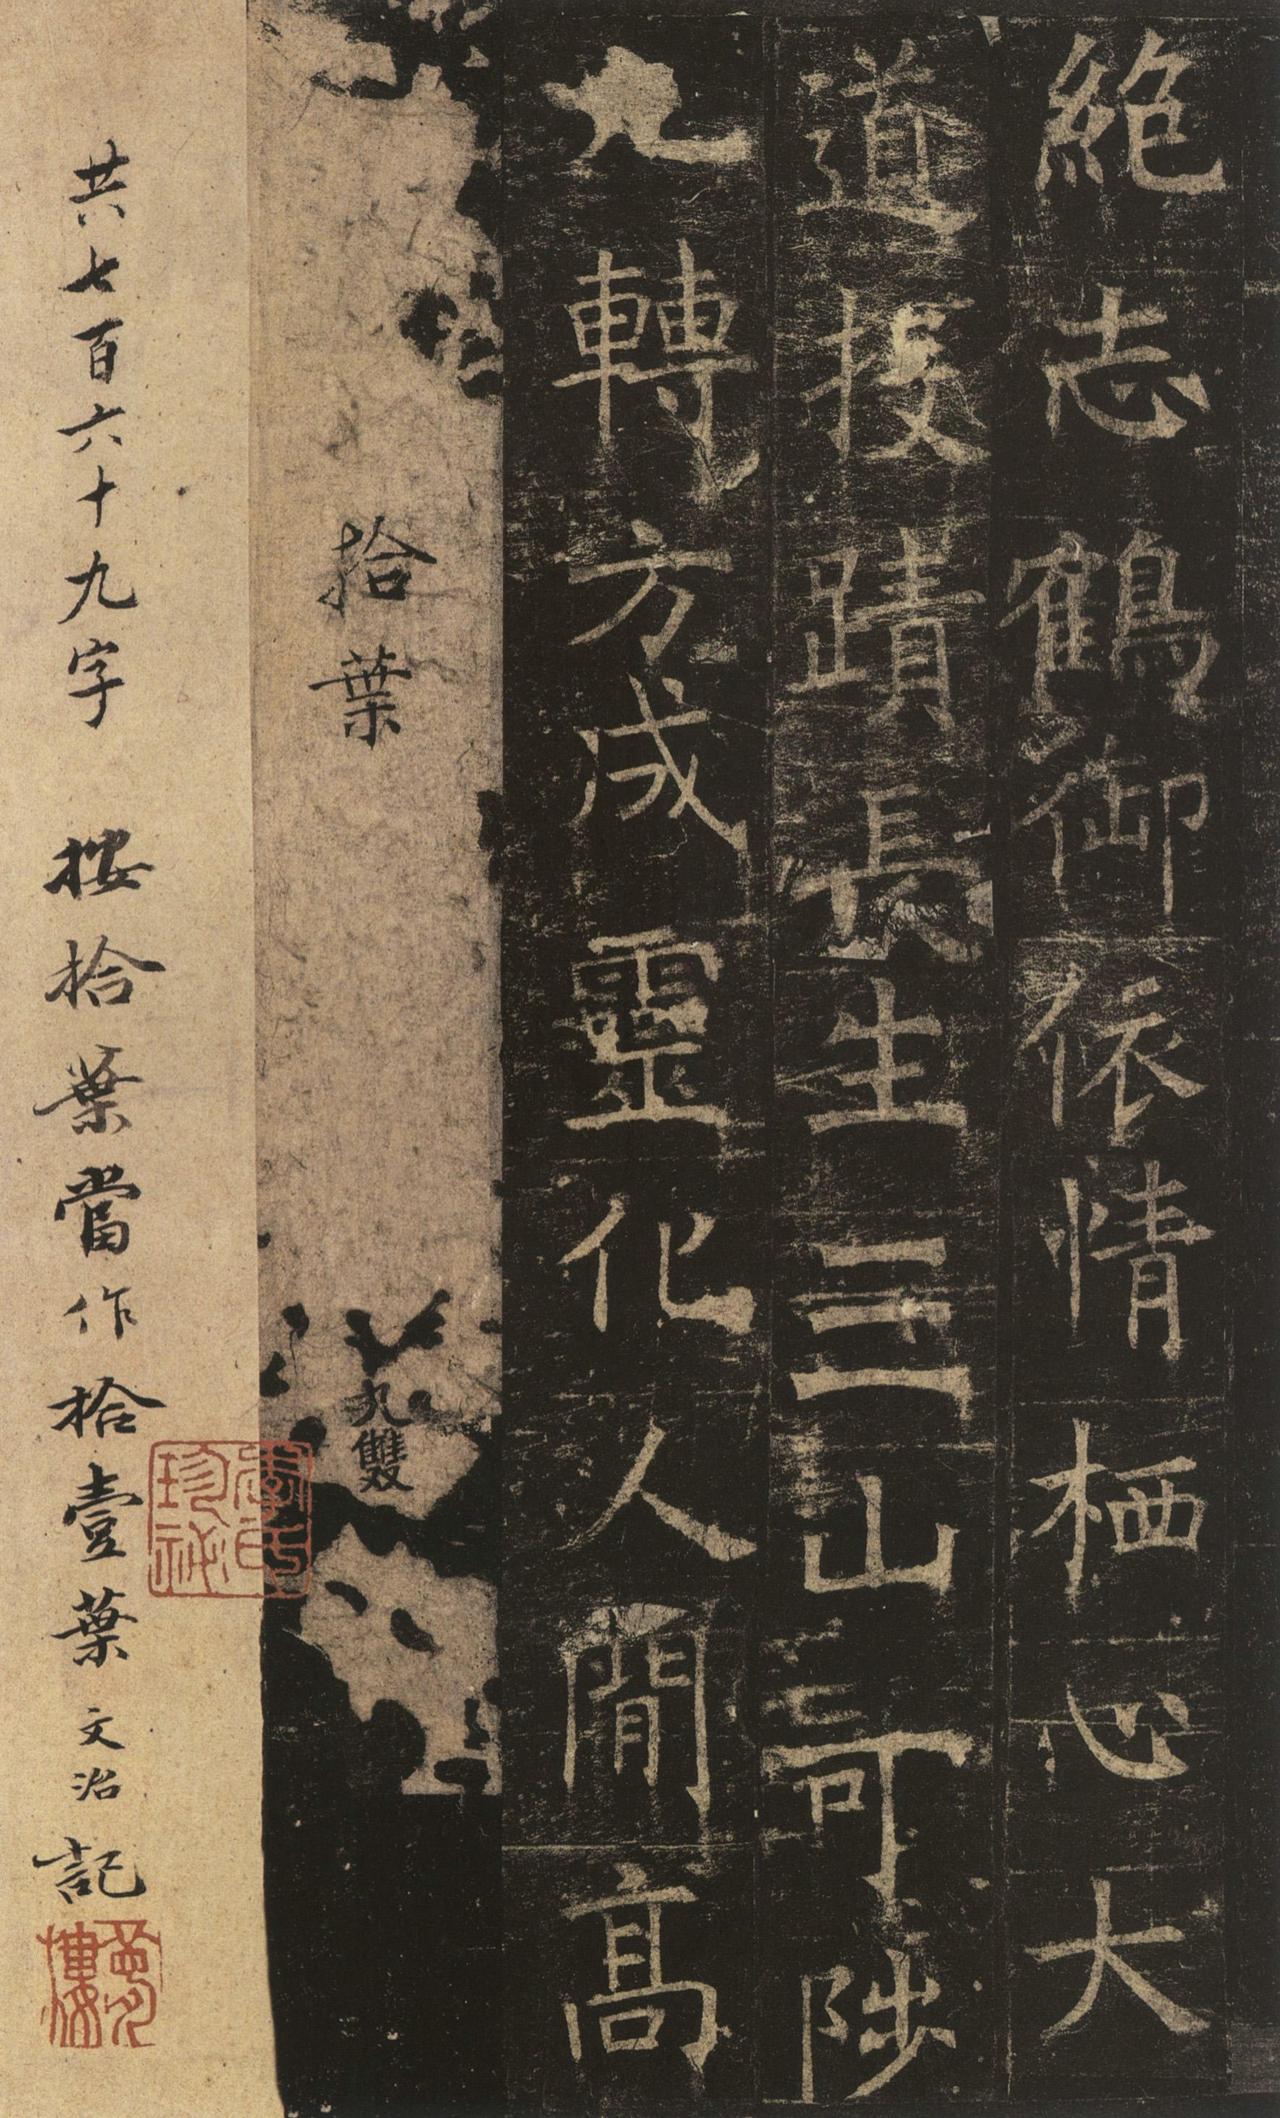 絶志鶴御依情栖心大
道投蹟長生三山可陟
九轉方成靈化人間高
拾葉
九雙
共七百六十九字 按拾葉當作拾壹葉 文治記
季氏珍祕
夢樓